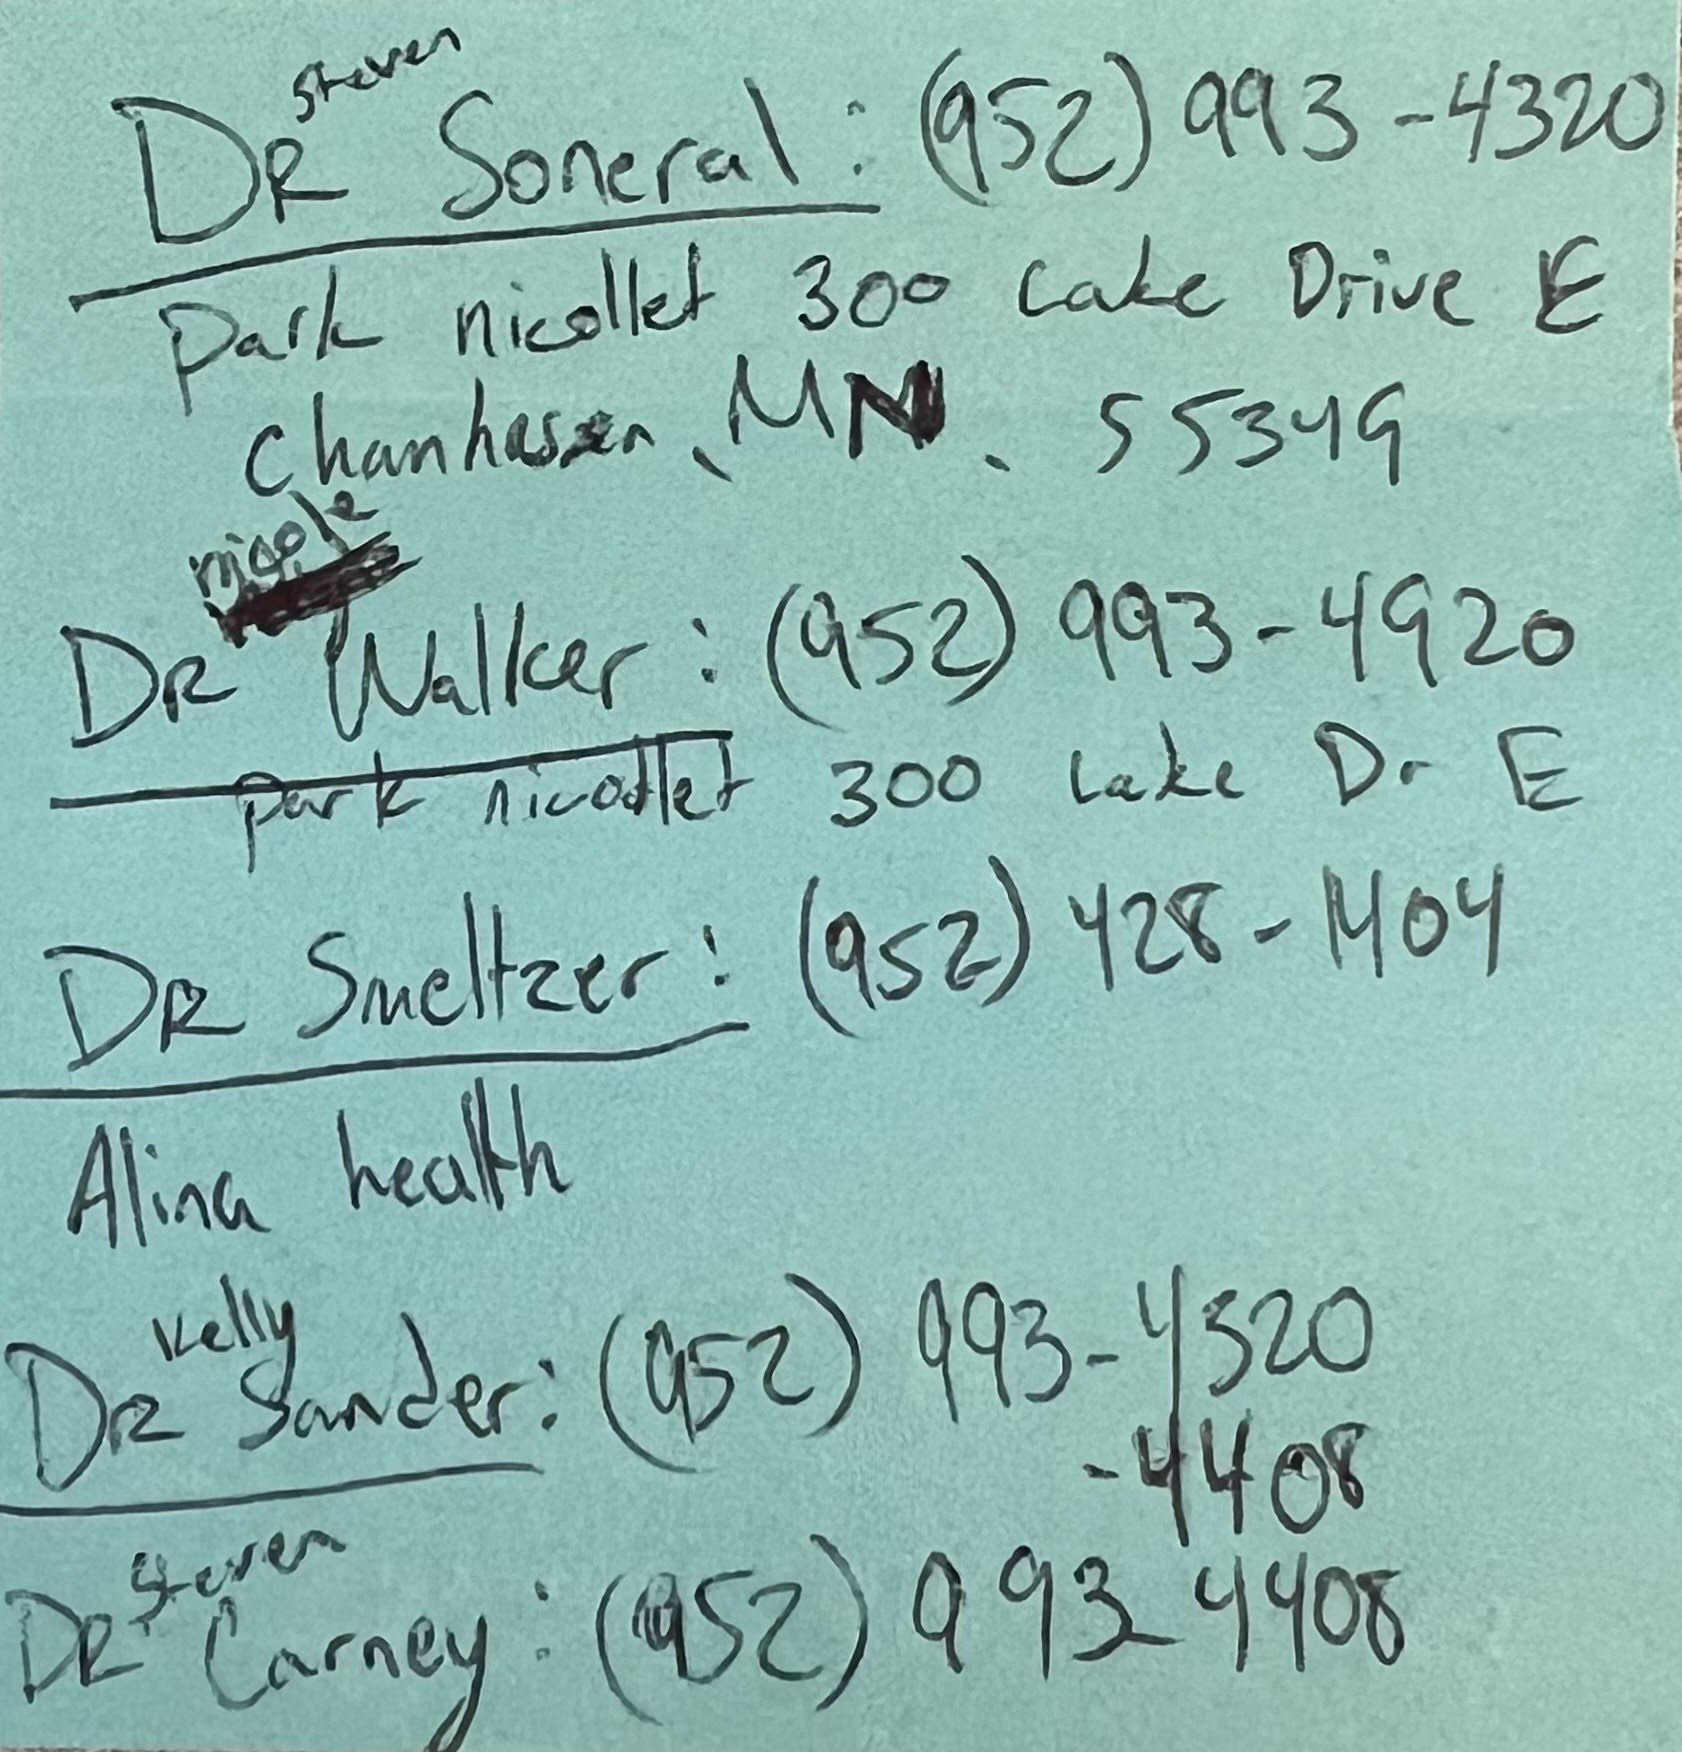 Steven
DR Soneral: (952) 993-4320
Park nicollet 300 Lake Drive E
Chanhassen, MN, 55349
nicole
DR Walker: (952) 993-4920
park nicollet 300 Lake Dr E
DR Smeltzer: (952) 428-1404
Alina health
Kelly
DR Sander: (952) 993-4320
-4408
Steven
DR Carney: (952) 993-4408